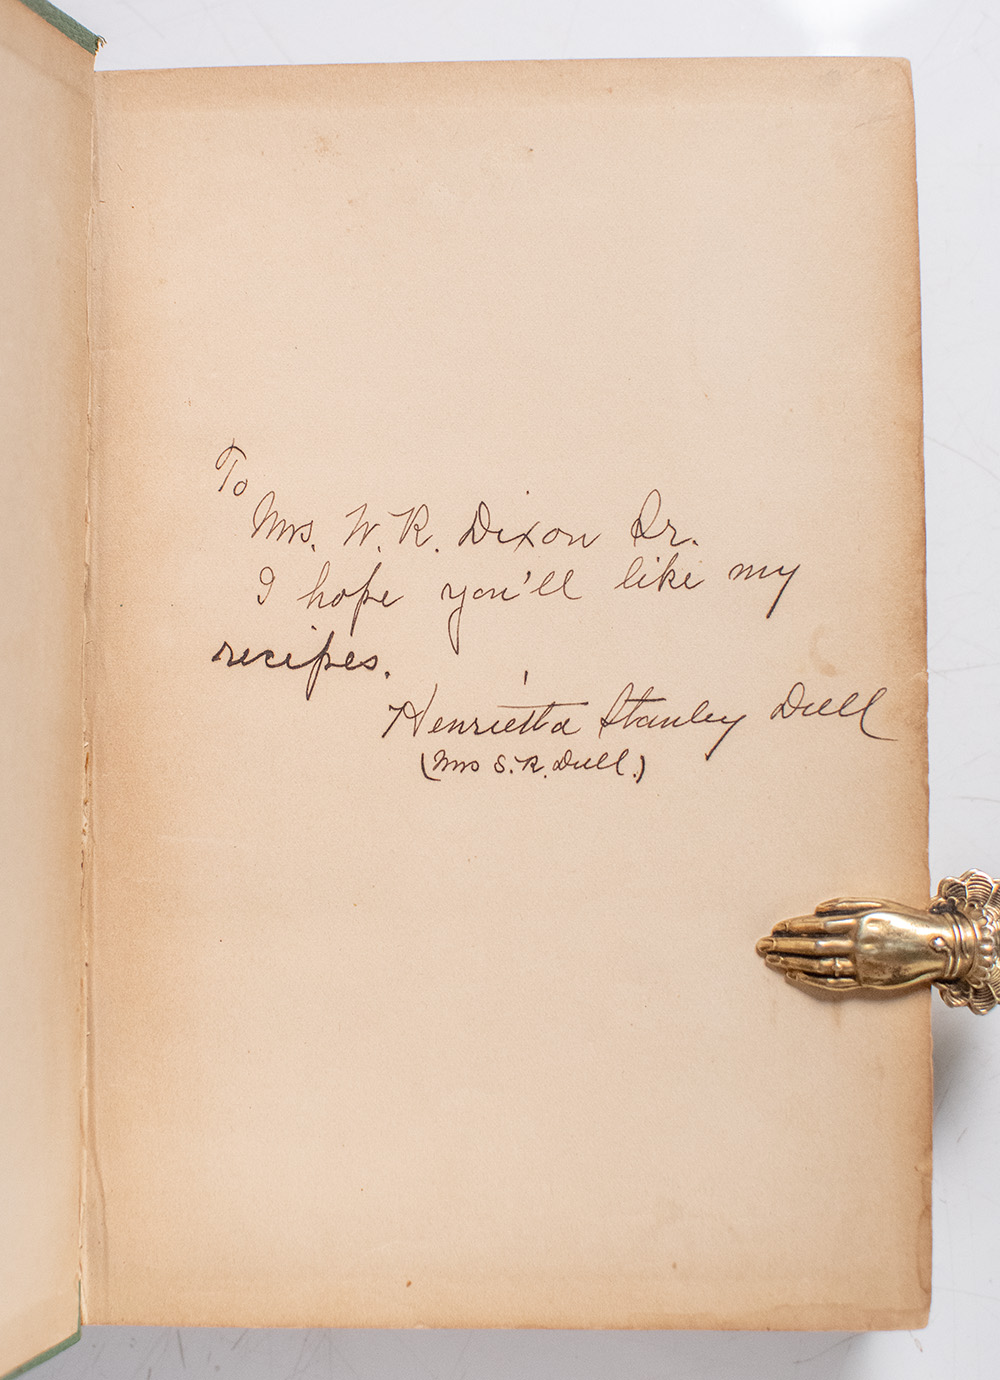 To
Mrs. W. R. Dixon Sr.
I hope you'll like my
recipes.
Henrietta Stanley Dull
(Mrs S. R. Dull.)